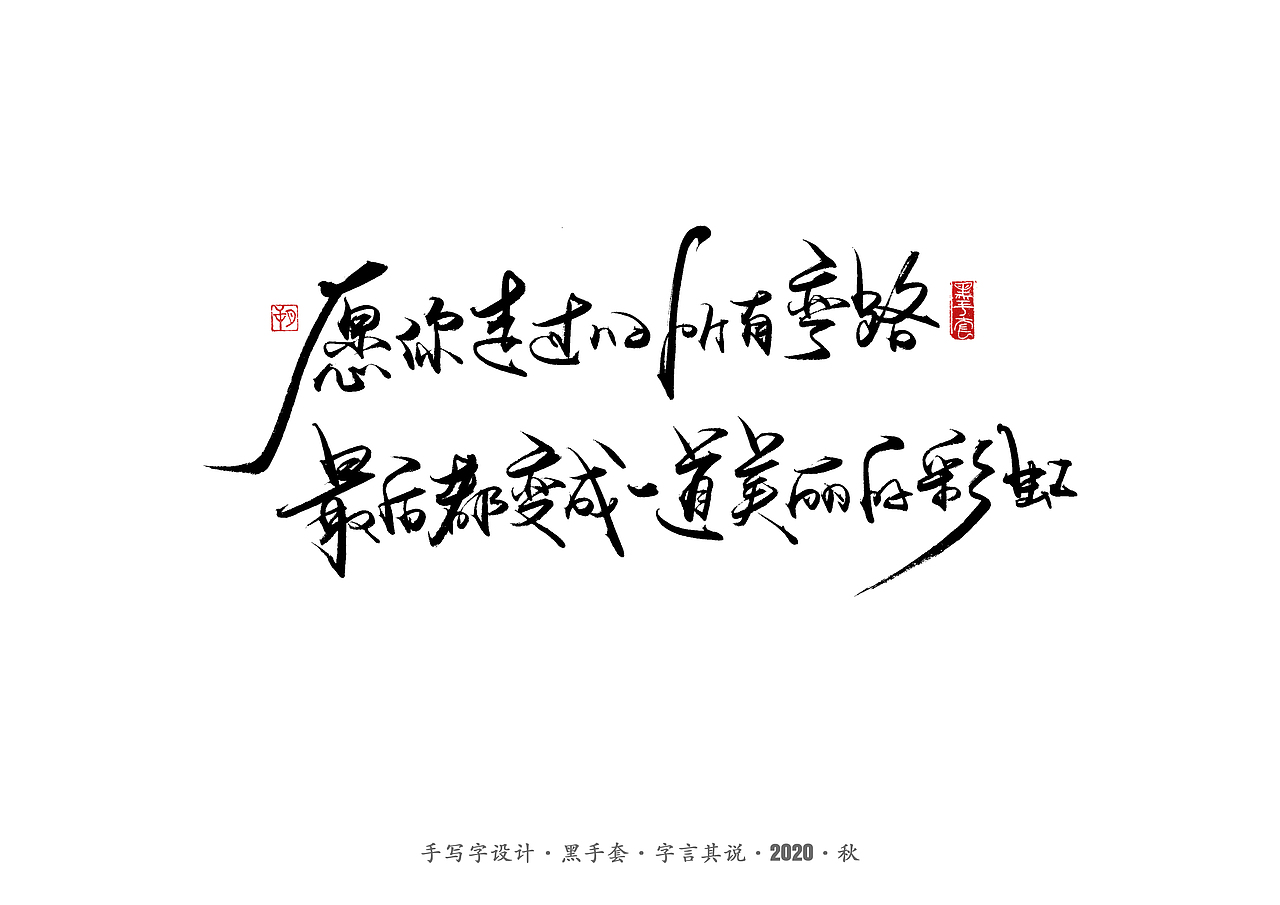 愿你走过的所有弯路
最后都变成一道美丽的彩虹
手写字设计·黑手套·字言其说·2020·秋